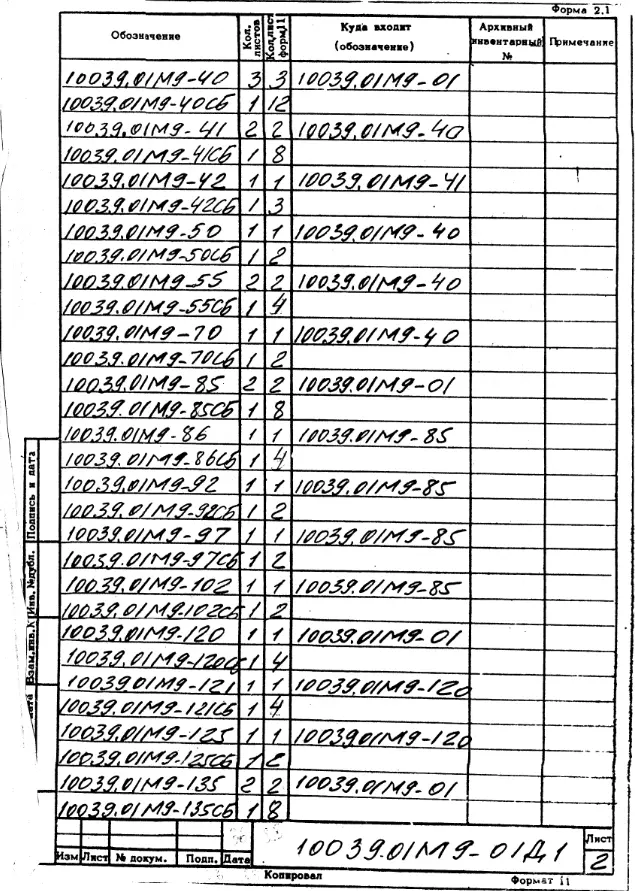 Форма 2.1
Обозначение Кол. листов Кол. лист форм.11 Куда входит (обозначение) Архивный инвентарный № Примечание
10039.01М9-40 3 3 10039.01М9-01
10039.01М9-40СБ 1 12
10039.01М9-41 2 2 10039.01М9-40
10039.01М9-41СБ 1 8
10039.01М9-42 1 1 10039.01М9-41
10039.01М9-42СБ 1 3
10039.01М9-50 1 1 10039.01М9-40
10039.01М9-50СБ 1 2
10039.01М9-55 2 2 10039.01М9-40
10039.01М9-55СБ 1 4
10039.01М9-70 1 1 10039.01М9-40
10039.01М9-70СБ 1 2
10039.01М9-85 2 2 10039.01М9-01
10039.01М9-85СБ 1 8
10039.01М9-86 1 1 10039.01М9-85
10039.01М9-86СБ 1 4
10039.01М9-92 1 1 10039.01М9-85
10039.01М9-92СБ 1 2
10039.01М9-97 1 1 10039.01М9-85
10039.01М9-97СБ 1 2
10039.01М9-102 1 1 10039.01М9-85
10039.01М9-102СБ 1 2
10039.01М9-120 1 1 10039.01М9-01
10039.01М9-120СБ 1 4
10039.01М9-121 1 1 10039.01М9-120
10039.01М9-121СБ 1 4
10039.01М9-125 1 1 10039.01М9-120
10039.01М9-125СБ 1 2
10039.01М9-135 2 2 10039.01М9-01
10039.01М9-135СБ 1 8
Подпись и дата
Инв. № дубл.
Взам. инв. №
дата
Изм Лист № докум. Подп. Дата
10039.01М9-01Д1
Лист
2
Копировал Формат 11